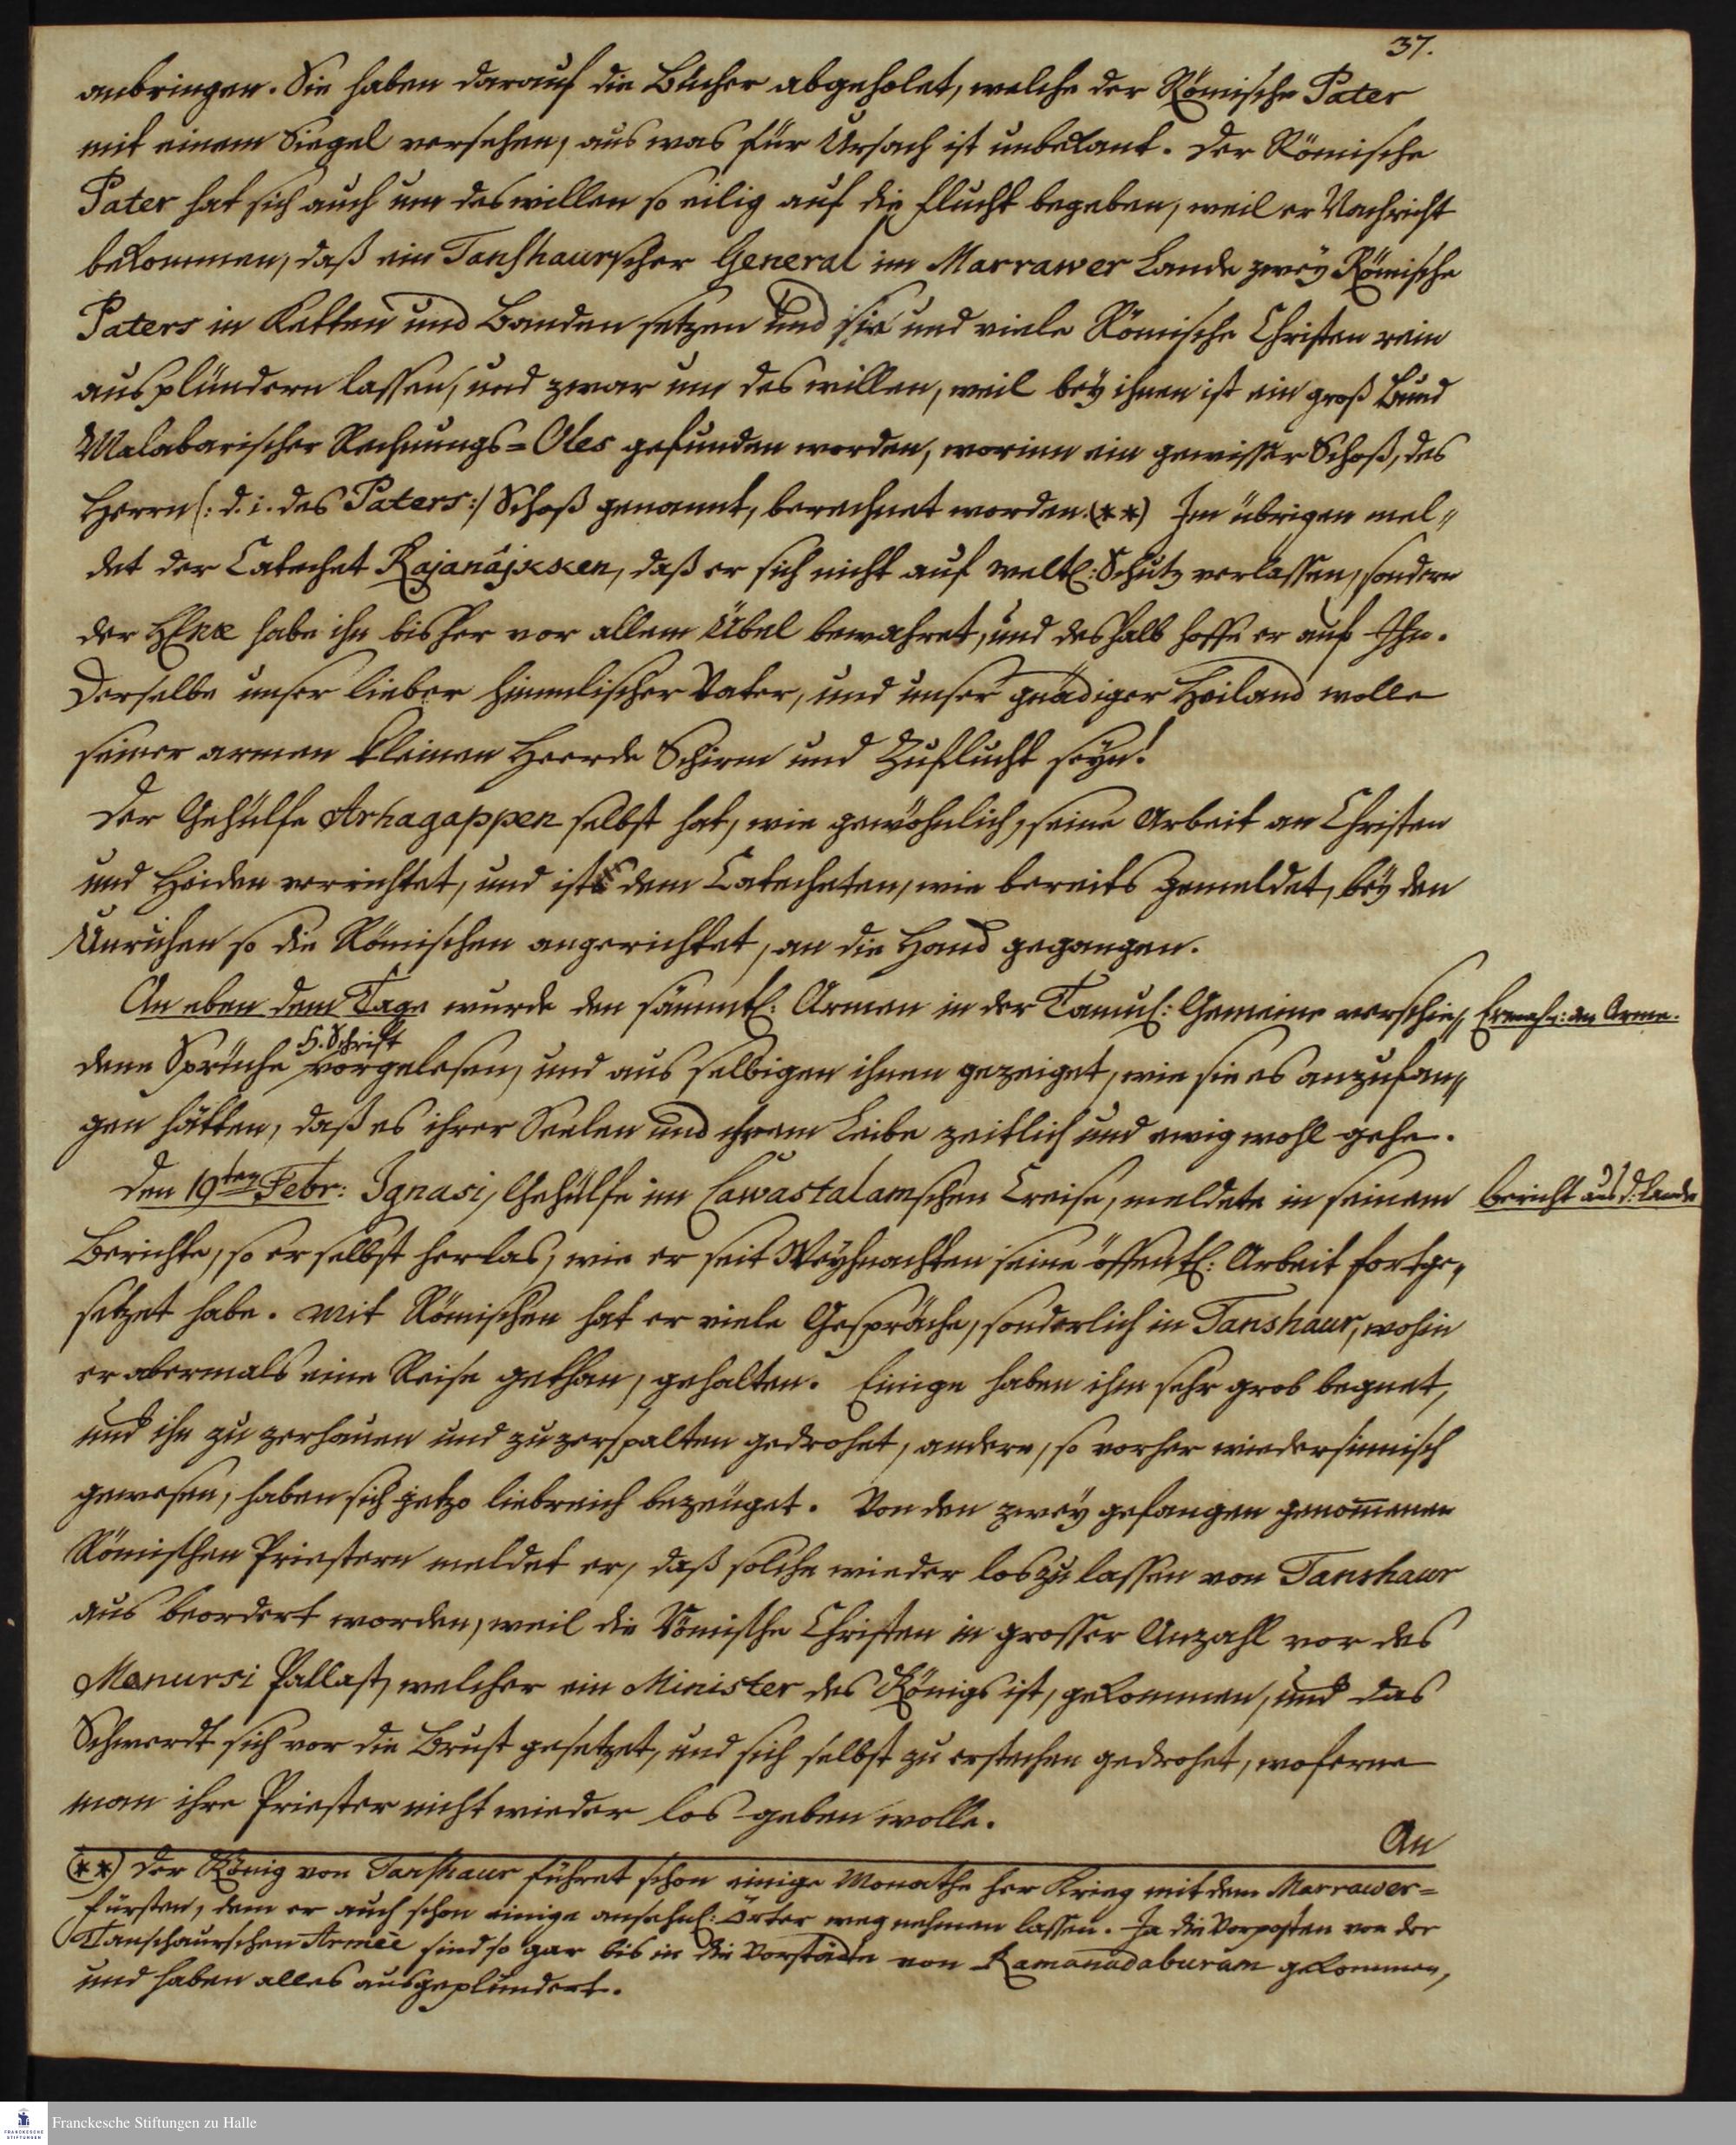 37.
anbringen. Sie haben darauf die Bücher abgeholet, welche der Römische Pater
mit einem Siegel versehen, aus was für Ursach ist unbekant. Der Römische
Pater hat sich auch um deswillen so eilig auf die Flucht begeben, weil er Nachricht
bekommen, daß ein Tanshaurscher General im Marrawer Lande zwey Römische
Paters in Ketten und Banden setzen und sie und viele Römische Christen rein
ausplündern lassen, und zwar um des willen, weil bey ihnen ist ein groß Bund
Malabarischer Rechnungs-Oles gefunden worden, worinn ein gewisser Schoß, des
Herrn (: d. i. des Paters:) Schoß genannt, berechnet worden.(**) Im übrigen mel„
det der Catechet Rajanâjkken, daß er sich nicht auf weltl: Schutz verlassen, sondern
der HErr habe ihn bisher vor allem Übel bewahret, und deshalb hoffe er auf Ihn.
Derselbe unser lieber himmlischer Vater, und unser gnädiger Heiland wolle
seiner armen kleinen Heerde Schirm und Zuflucht seyn!
Der Gehülfe Arhagappen selbst hat, wie gewöhnlich, seine Arbeit an Christen
und Heiden verrichtet, und ist dem Catecheten, wie bereits gemeldet, bey den
Unruhen so die Römischen angerichtet, an die Hand gegangen.
An eben dem Tage wurde den sämmtl: Armen in der Tamul: Gemeine verschie„
Ermahn: an Arme.
H. Schrift
dene Sprüche vorgelesen, und aus selbigen ihnen gezeiget, wie sie es anzufan„
gen hätten, daß es ihrer Seelen und ihrem Leibe zeitlich und ewig wohl gehe.
Den 19ten Febr: Ignasi, Gehülfe im Cawastalamschen Creise, meldete in seinem
Bericht aus d. Lande
Berichte, so er selbst herlas, wie er seit Weyhnachten seine öffentl: Arbeit fortge„
setzet habe. Mit Römischen hat er viele Gespräche, sonderlich in Tanshaur, wohin
er abermals eine Reise gethan, gehalten. Einige haben ihm sehr grob begnet,
und ihn zu zerhauen und zu zerspalten gedrohet, andere, so vorher wiedersinnisch
gewesen, haben sich jetzo liebreich bezeuget. Von den zwey gefangen genom̅enen
Römischen Priestern meldet er, daß solche wieder loszulassen von Tanshaur
aus beordert worden, weil die Römische Christen in grosser Anzahl vor des
Manursi Pallast, welcher ein Minister des Königs ist, gekommen, und das
Schwerdt sich vor die Brust gesetzet, und sich selbst zu erstechen gedrohet, woferne
man ihre Priester nicht wieder los geben wolle.
An
(**) Der König von Tanshaur führet schon einige Monathe her Krieg mit dem Marrawer-
Fürsten, dem er auch schon einige ansehnl: Örter wegnehmen lassen. Ja die Vorposten von der
Tanschaurschen Armée sind so gar bis in die Vorstädte von Ramanadaburam gekommen,
und haben alles ausgeplündert.
Franckesche Stiftungen zu Halle
FRANCKESCHE
STIFTUNGEN